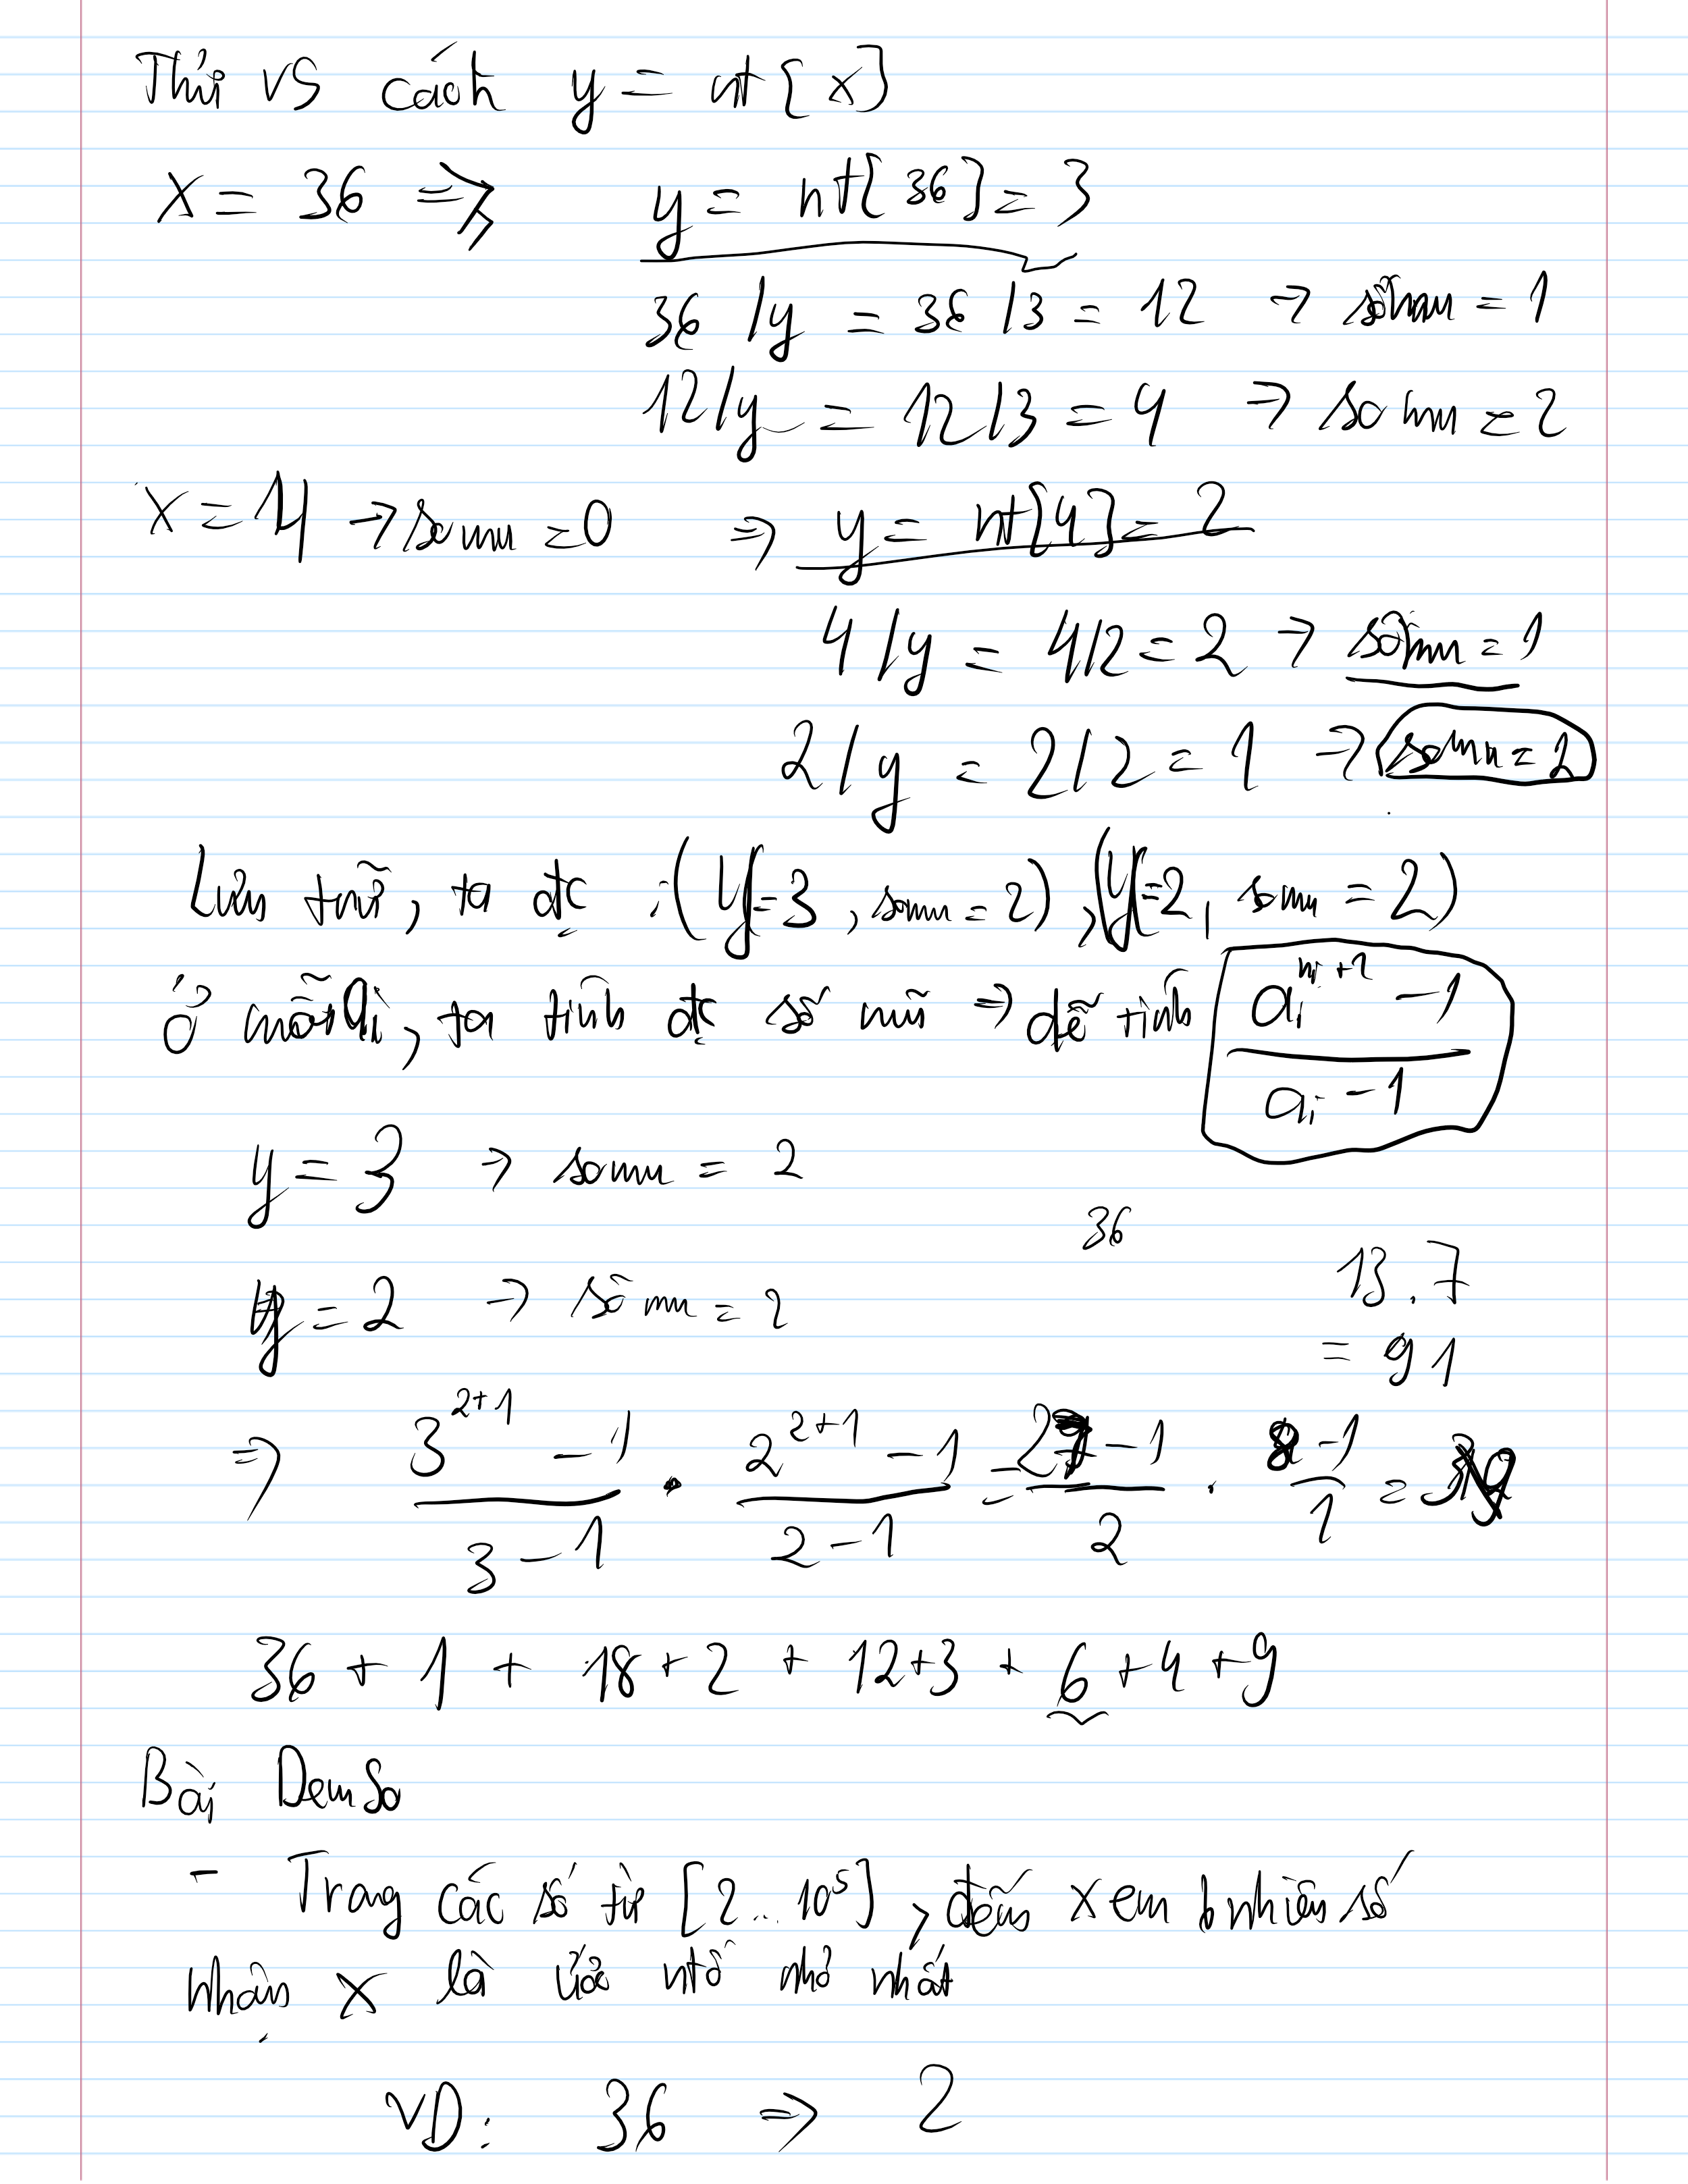 Thử vs cách y = nt[x]
x = 36 => y = nt[36] = 3
36 / y = 36 / 3 = 12 → somu = 1
12 / y = 12 / 3 = 4 → somu = 2
x = 4 → somu = 0 => y = nt[4] = 2
4 / y = 4 / 2 = 2 → somu = 1
2 / y = 2 / 2 = 1 → somu = 2
Lưu trữ, ta đc : (y = 3, somu = 2), (y = 2, somu = 2)
Ở mỗi ai, ta tính đc số mũ => dễ tính (ai^(mi+1) - 1) / (ai - 1)
y = 3 → somu = 2
36
13 . 7
y = 2 → somu = 2
= 91
=> (3^(2+1) - 1) / (3 - 1) . (2^(2+1) - 1) / (2 - 1) = (27 - 1) / 2 . (8 - 1) / 1 =
36 + 1 + 18 + 2 + 12 + 3 + 6 + 4 + 9
Bài DemSo
- Trong các số từ [2 .. 10^5], đếm xem bnhiêu số
nhận x là ước ntố nhỏ nhất
VD: 36 => 2